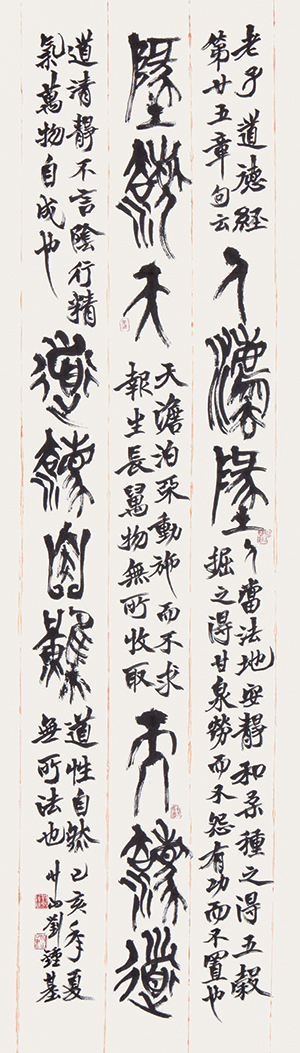 老子道德經
第廿五章句云
人灋墬
人當法地安靜和柔種之得五穀
掘之得甘泉勞而不怨有功而不置也
墬灋天
天澹泊不動施而不求
報生長萬物無所收取
天灋道
道清靜不言陰行精
氣萬物自成也
道灋自然
道性自然
無所法也
己亥年夏
劉鍾基